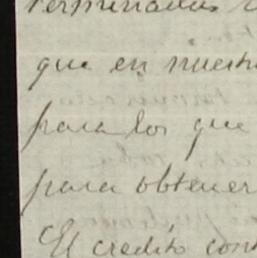 terminadas
que en nuestr
para los que
para obtener
El credito cont